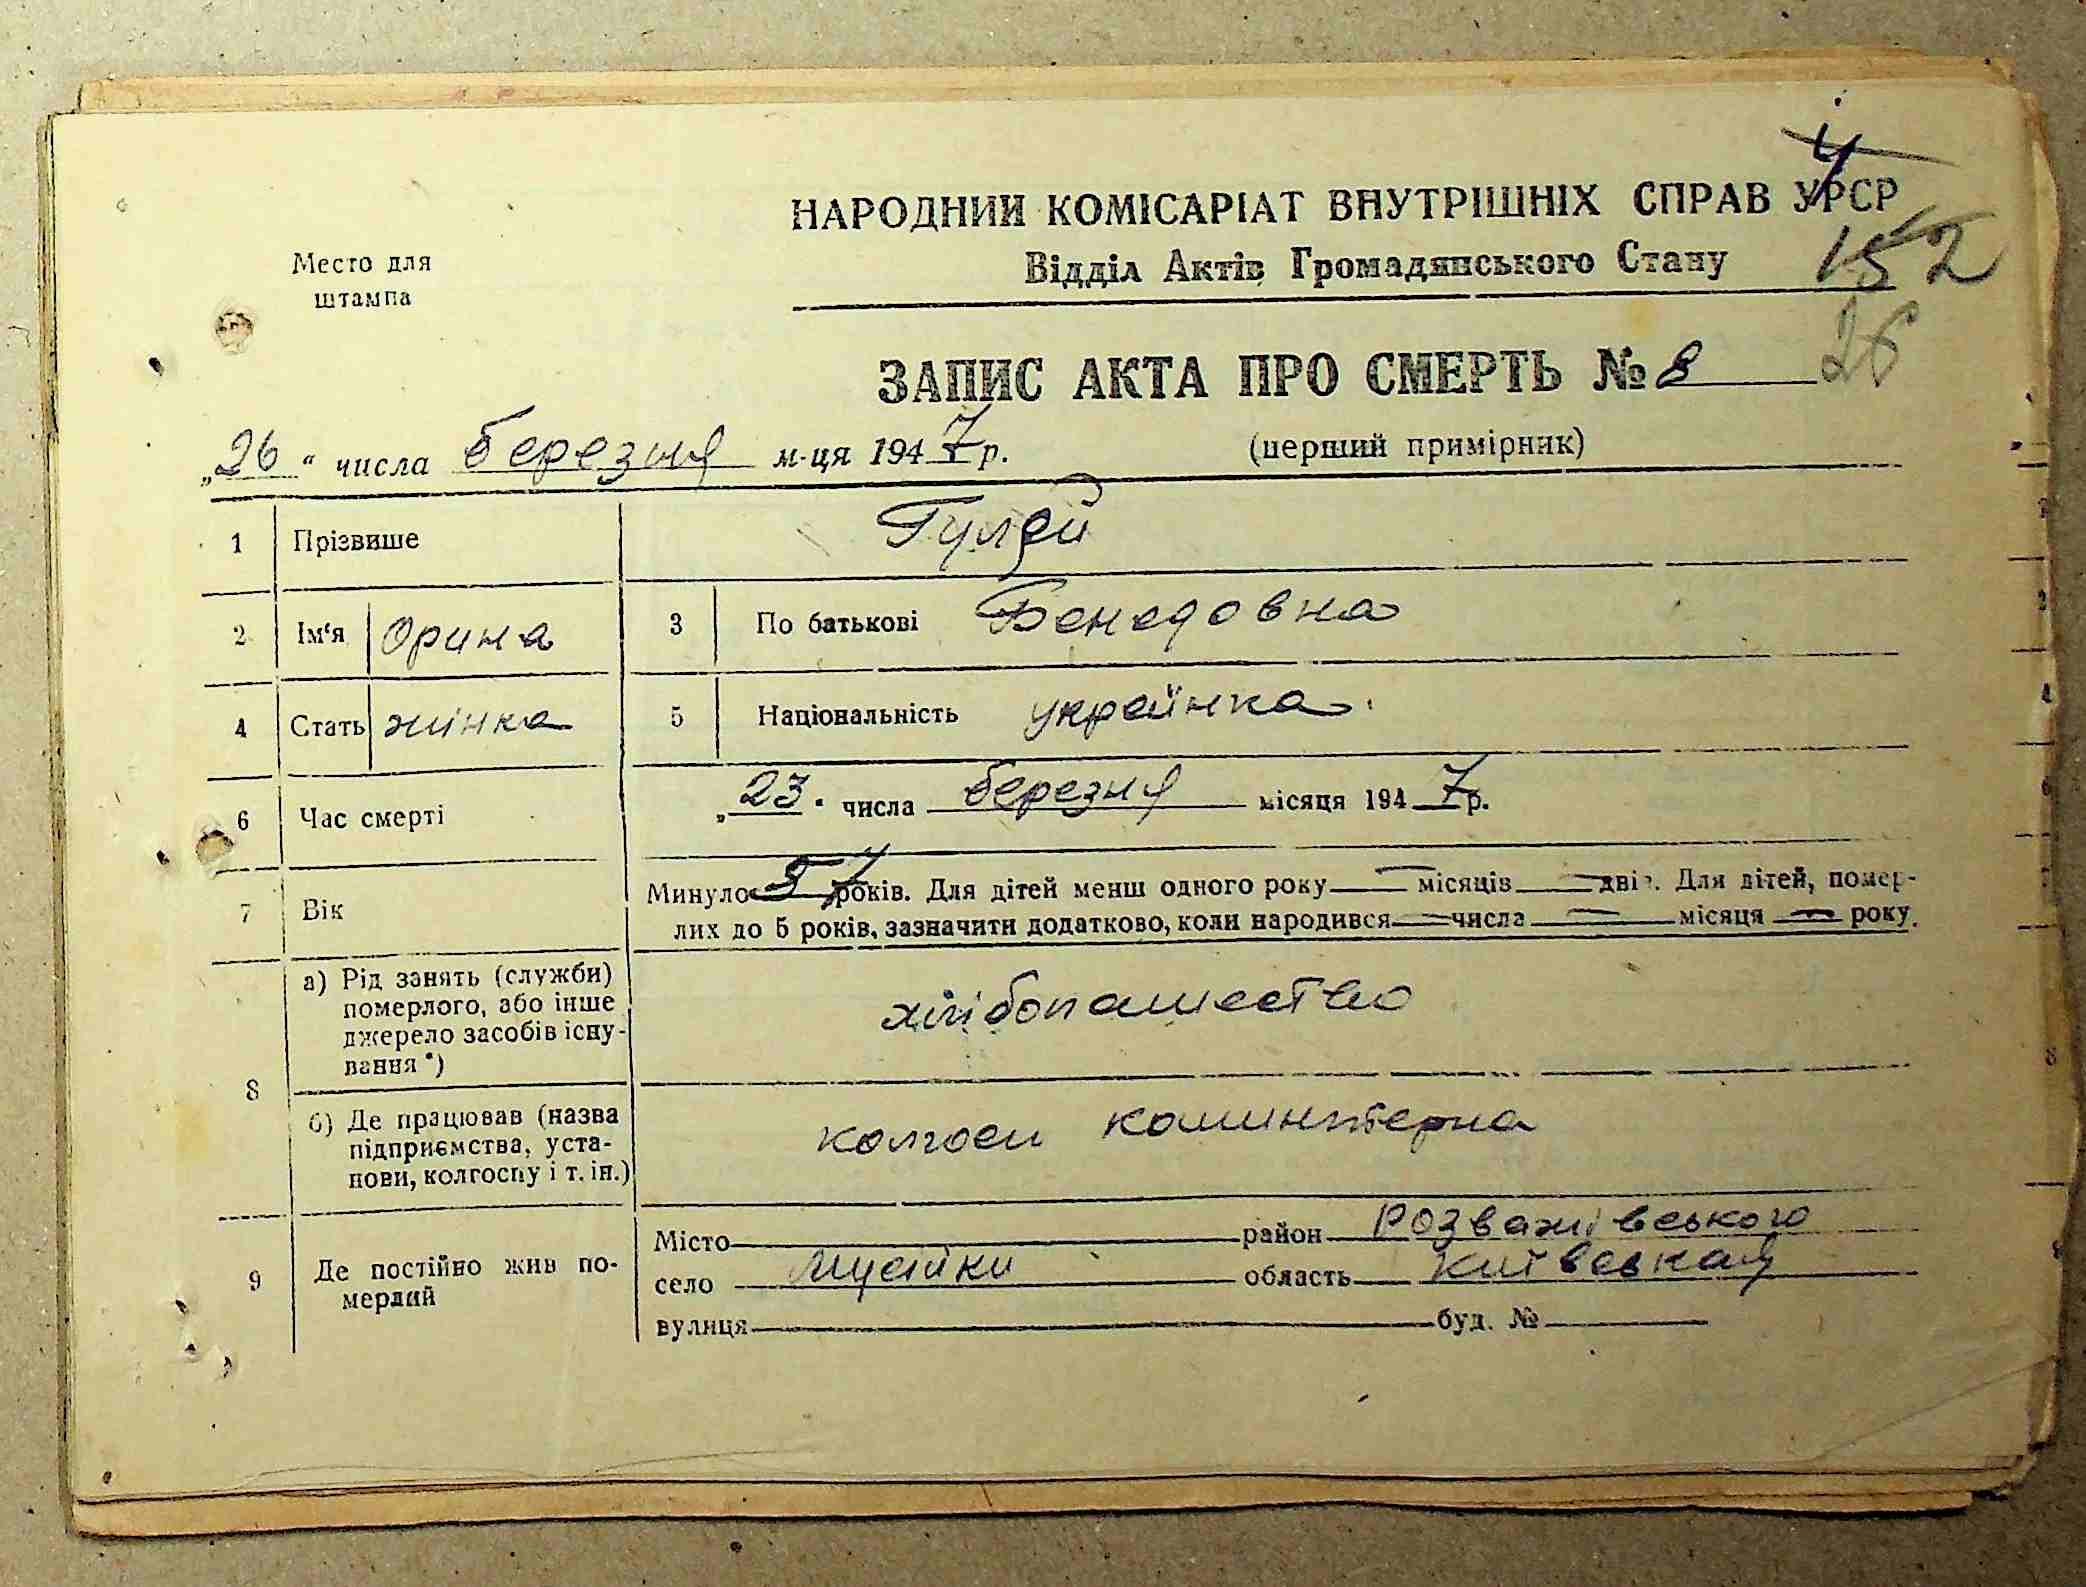 У
НАРОДНИЙ КОМІСАРІАТ ВНУТРІШНІХ СПРАВ УРСР
Место для
штампа
Відділ Актів Громадянського Стану
152
26
ЗАПИС АКТА ПРО СМЕРТЬ № 8
„26“ числа березня м-ця 1947 р.
(перший примірник)
1 Прізвише Гулей
2 Ім‘я Орина 3 По батькові Бенедовна
4 Стать жінка 5 Національність українка.
6 Час смерті „23“ числа березня місяця 1947 р.
7 Вік Минуло 57 років. Для дітей менш одного року — місяців — днів. Для дітей, помер-
лих до 5 років, зазначити додатково, коли народився — числа — місяця — року.
8
а) Рід занять (служби)
померлого, або інше
джерело засобів існу-
вання *)
хлібопашество
б) Де працював (назва
підприємства, уста-
нови, колгоспу і т. ін.)
колгосп коминтерна
9 Де постійно жив по-
мерлий
Місто — район Розважівського
село Мусійки область Київская
вулиця — буд. №